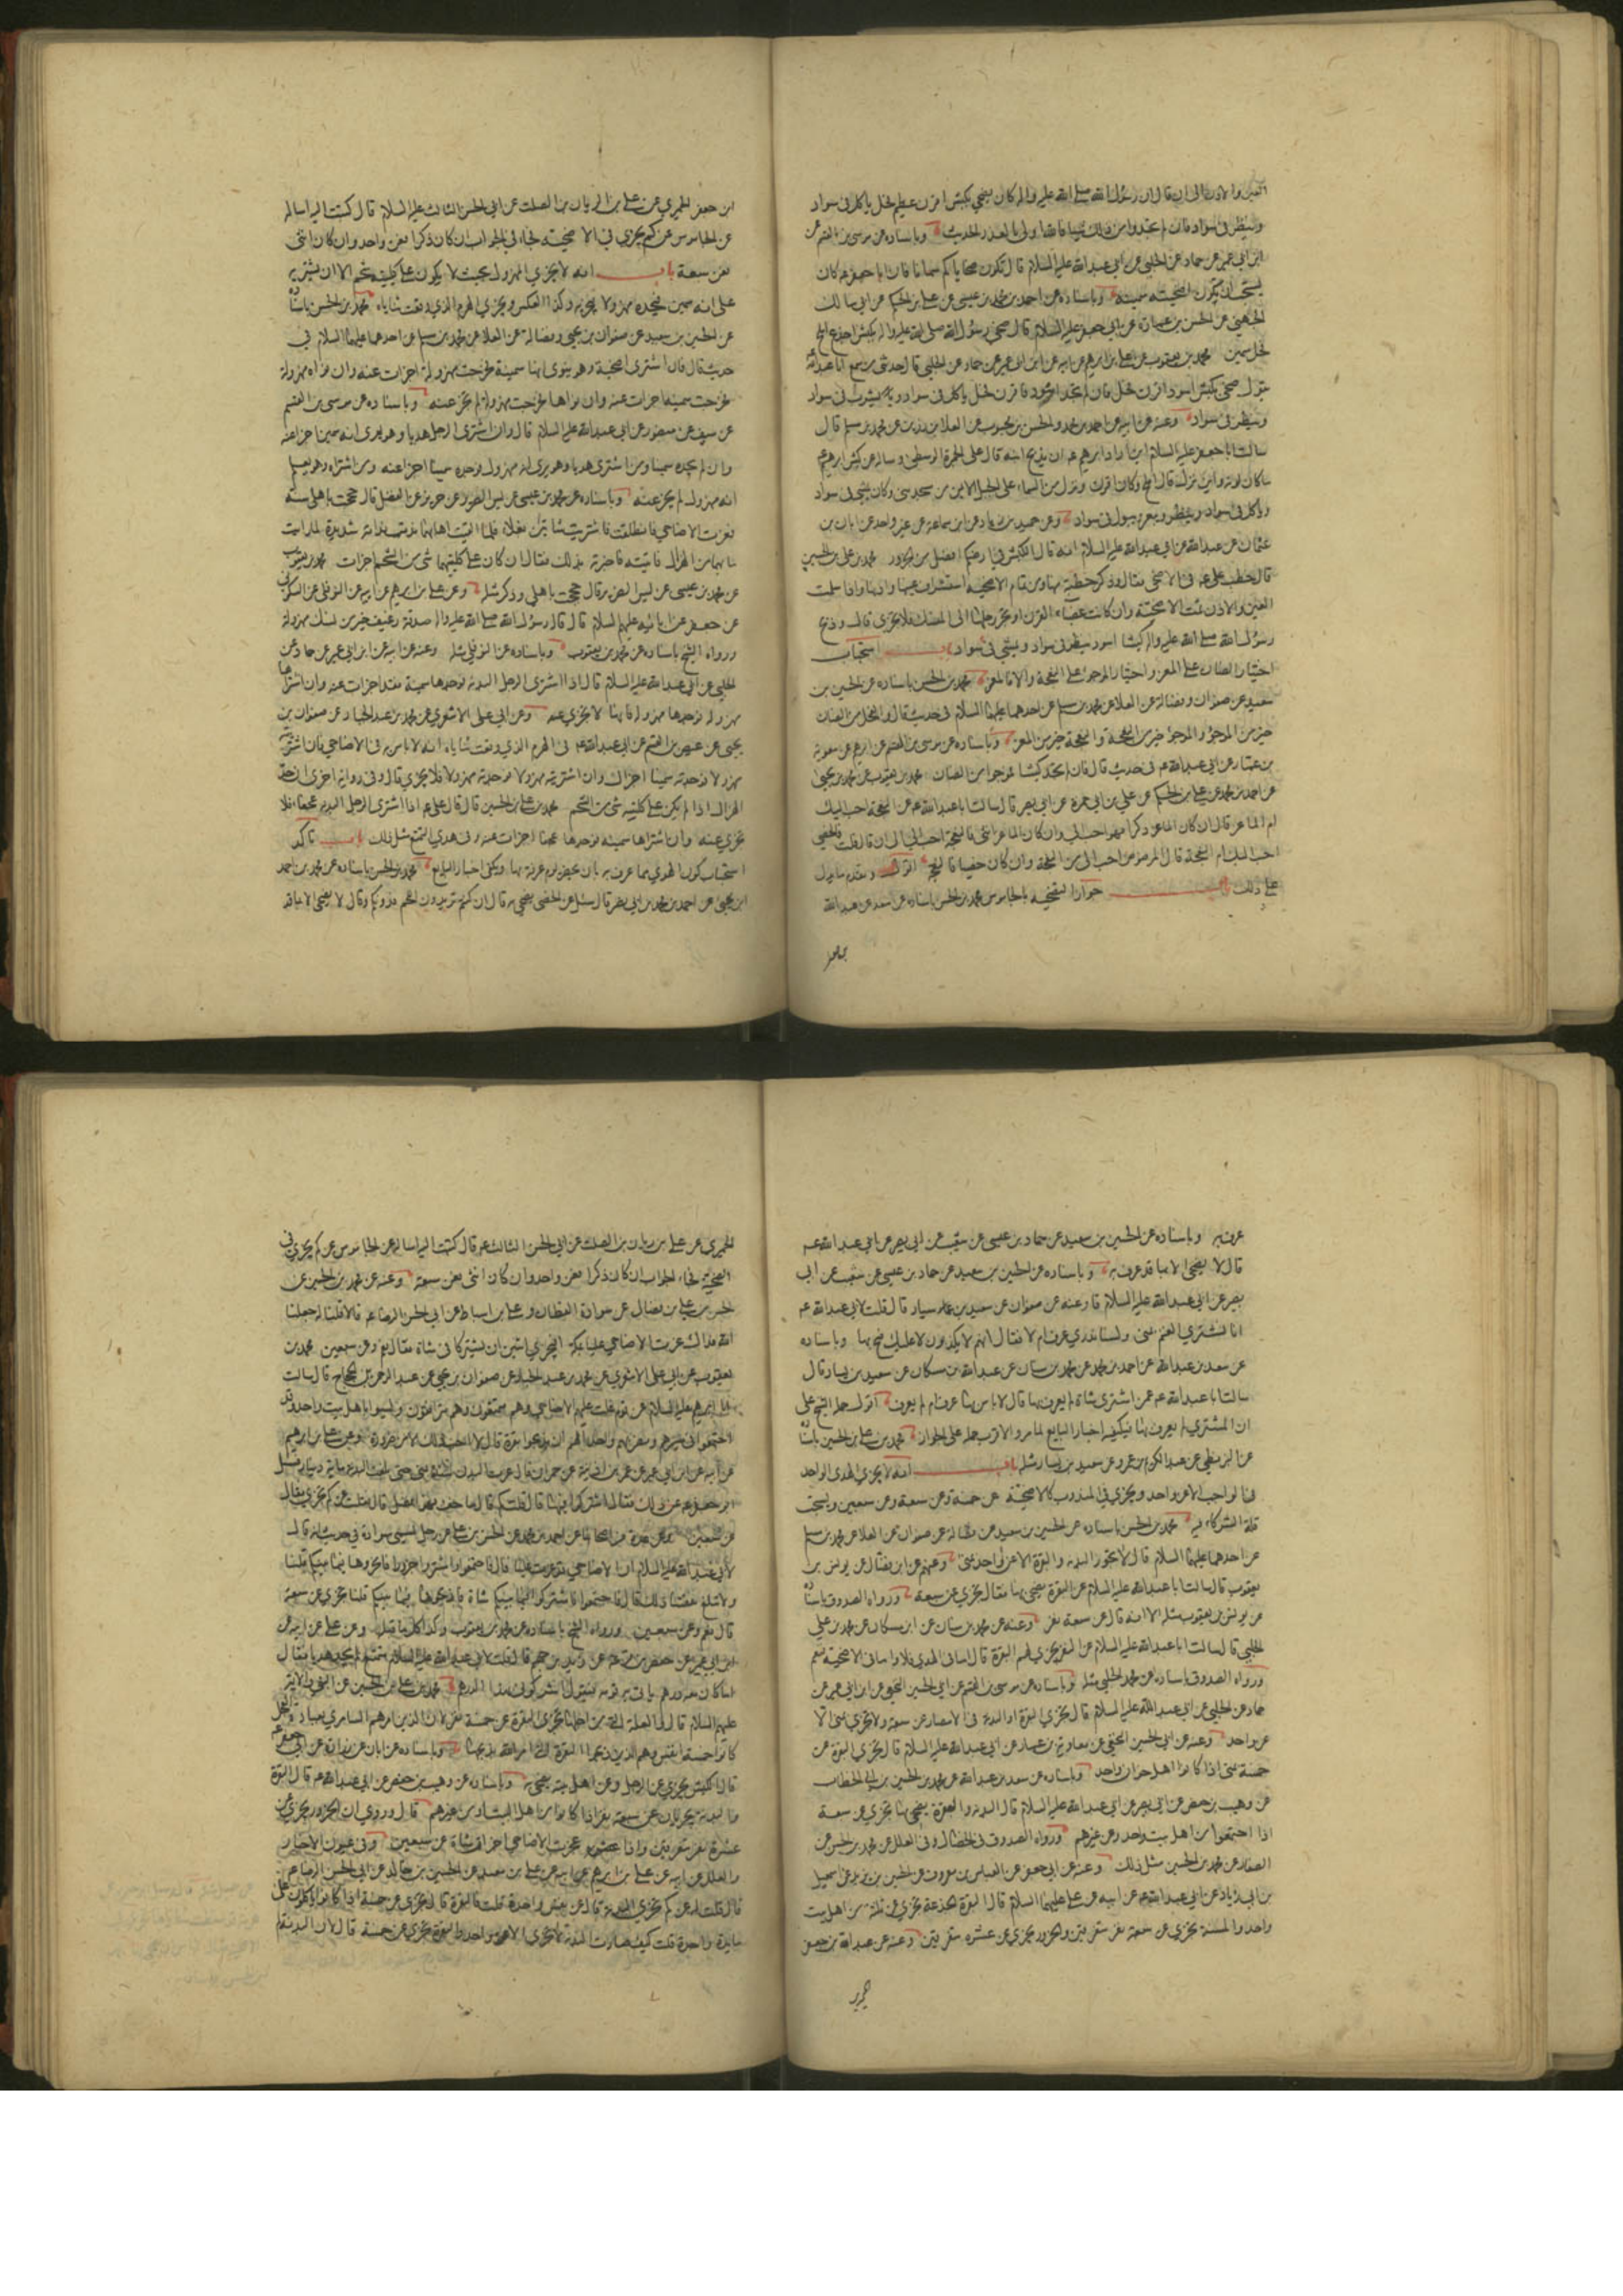 العين والاذن الى ان قال ان رسول الله صلى الله عليه واله كان يضحي بكبش اقرن عظيم فحل ياكل في سواد
وينظر في سواد فان لم تجدوا من ذلك شيئا فالله اولى بالعذر الحديث وباسناده عن موسى بن القسم عن
ابن ابي عمير عن حماد عن الحلبي عن ابي عبد الله عليه السلام قال تكون ضحاياكم سمانا فان ابا جعفر ع كان
يستحب ان يكون اضحيته سمينة وباسناده عن احمد بن محمد بن عيسى عن علي بن الحكم عن ابي مالك
الجهني عن الحسن بن عمارة عن ابي جعفر عليه السلام قال ضحى رسول الله صلى الله عليه واله بكبش اجذع املح
فحل سمين محمد بن يعقوب عن علي بن ابرهيم عن ابيه عن ابن ابي عمير عن حماد عن الحلبي قال حدثني من سمع ابا عبد الله
يقول ضحي بكبش اسود اقرن فحل فان لم تجد اسود فاقرن فحل ياكل في سواد ويشرب في سواد
وينظر في سواد وعنه عن ابيه عن احمد بن محمد والحسن بن محبوب عن العلا بن رزين عن محمد بن مسلم قال
سالت ابا جعفر عليه السلام اين اراد ابرهيم ع ان يذبح ابنه قال على الجمرة الوسطى وساله عن كبش ابرهيم ع
ما كان لونه واين نزل قال املح وكان اقرن ونزل من السماء على الجبل الايمن من مسجد منى وكان يمشي في سواد
وياكل في سواد وينظر ويبعر ويبول في سواد وعن حميد بن زياد عن ابن سماعة عن غير واحد عن ابان بن
عثمان عن عبد الله عن ابي عبد الله عليه السلام انه قال الكبش في ارضكم افضل من الجزور محمد بن علي بن الحسين
قال خطب علي ع في الاضحى فقال وذكر خطبة منها ومن تمام الاضحية استشراف عينها واذنها واذا سلمت
العين والاذن تمت الاضحية وان كانت عضباء القرن او تجر رجلها الى المنسك فلا تجزي قال وذبح
رسول الله صلى الله عليه واله كبشا اسود ينظر في سواد ويمشي في سواد باب استحباب
اختيار الضان على المعز واختيار الموجوء على النعجة والا فالمعز محمد بن الحسن باسناده عن الحسين بن
سعيد عن صفوان وفضالة عن العلا عن محمد بن مسلم عن احدهما عليهما السلام في حديث قال والفحل من الضان
خير من الموجوء والموجوء خير من النعجة والنعجة خير من المعز وباسناده عن موسى بن القسم عن ابرهيم عن معوية
بن عمار عن ابي عبد الله ع في حديث قال فان لم تجد كبشا فموجوا من الضان محمد بن يعقوب عن محمد بن يحيى
عن احمد بن محمد عن علي بن الحكم عن علي بن ابي حمزة عن ابي بصير قال سالت ابا عبد الله ع عن النعجة احب اليك
ام الماعز قال ان كان الماعز ذكرا فهو احب الي وان كان الماعز انثى فالنعجة احب الي الى ان قال قلت فالخصي
احب اليك ام النعجة قال المرضوض احب الي من النعجة وان كان خصيا فالنعجة اقول وتقدم ما يدل
على ذلك باب جواز التضحية بالجاموس محمد بن الحسن باسناده عن سعد عن عبد الله
بن جعفر
ابن جعفر الحميري عن علي بن الريان بن الصلت عن ابي الحسن الثالث عليه السلام قال كتبت اليه اساله
عن الجاموس عن كم يجزي في الاضحية فجاء في الجواب ان كان ذكرا فعن واحد وان كان انثى
فعن سبعة باب انه لا يجزي المهزول بحيث لا يكون على كليتيه شحم الا ان يشتريه
على انه سمين فيجده مهزولا فيجزيه وكذا العكس ويجزي الهرم الذي وقعت ثناياه محمد بن الحسن باسناده
عن الحسين بن سعيد عن صفوان بن يحيى وفضالة عن العلا عن محمد بن مسلم عن احدهما عليهما السلام في
حديث قال فان اشترى اضحية وهو ينوي انها سمينة فخرجت مهزولة اجزات عنه وان نواها مهزولة
فخرجت سمينة اجزات عنه وان نواها فخرجت مهزولة لم تجز عنه وباسناده عن موسى بن القسم
عن سيف عن منصور عن ابي عبد الله عليه السلام قال وان اشترى الرجل هديا وهو يرى انه سمين اجزا عنه
وان لم يجده سمينا ومن اشترى هديا وهو يرى انه مهزول فوجده سمينا اجزا عنه ومن اشتراه وهو يعلم
انه مهزول لم يجز عنه وباسناده عن محمد بن عيسى عن يس الضرير عن حريز عن الفضيل قال حججت باهلي سنة
فعزت الاضاحي فانطلقت فاشتريت شاتين بغلاء فلما القيت اهابيهما ندمت ندامة شديدة لما رايت
ما بهما من الهزال فاتيته فاخبرته بذلك فقال ان كان على كليتيهما شيء من الشحم اجزات محمد بن يعقوب
عن محمد بن عيسى عن يس الضرير قال حججت باهلي وذكر مثله وعن علي بن ابرهيم عن ابيه عن النوفلي عن السكوني
عن جعفر عن ابائه عليهم السلام قال قال رسول الله صلى الله عليه واله صدقة رغيف خير من نسك مهزولة
ورواه الشيخ باسناده عن محمد بن يعقوب وباسناده عن النوفلي مثله وعنه عن ابيه عن ابن ابي عمير عن حماد عن
الحلبي عن ابي عبد الله عليه السلام قال اذا اشترى الرجل البدنة فوجدها سمينة فقد اجزات عنه وان اشتراها
مهزولة فوجدها مهزولة فانها لا تجزي عنه وعن ابي علي الاشعري عن محمد بن عبد الجبار عن صفوان بن
يحيى عن عيص بن القسم عن ابي عبد الله ع في الهرم الذي وقعت ثناياه انه لا باس به في الاضاحي فان اشتريته
مهزولا فوجدته سمينا اجزاك وان اشتريته مهزولا فوجدته مهزولا فلا يجزي قال وفي رواية اخرى ان حد
الهزال اذا لم يكن على كليتيه شيء من الشحم محمد بن علي بن الحسين قال قال علي ع اذا اشترى الرجل البدنة عجفاء فلا
تجزي عنه وان اشتراها سمينة فوجدها عجفا اجزات عنه وفي هدي التمتع مثل ذلك باب تاكد
استحباب كون الهدي مما عرف به بان يحضر يوم عرفة بها ويكفي اخبار البايع محمد بن الحسن باسناده عن محمد بن احمد
ابن يحيى عن احمد بن محمد بن ابي نصر قال سئل عن الخصي يضحى به قال ان كنتم تريدون اللحم فدونكم وقال لا يضحى الا بما قد
عرف به وباسناده عن الحسين بن سعيد عن حماد بن عيسى عن شعيب عن ابي بصير عن ابي عبد الله ع
قال لا يضحى الا بما قد عرف به وباسناده عن الحسين بن سعيد عن حماد بن عيسى عن شعيب عن ابي
بصير عن ابي عبد الله عليه السلام قال وعنه عن صفوان عن سعيد بن يسار قال قلت لابي عبد الله ع
انا نشتري الغنم بمنى ولسنا ندري عرف بها ام لا فقال انهم لا يكذبون لا عليك ضح بها وباسناده
عن سعد بن عبد الله عن احمد بن محمد عن محمد بن سنان عن عبد الله بن مسكان عن سعيد بن يسار قال
سالت ابا عبد الله ع عمن اشترى شاة لم يعرف بها قال لا باس بها عرف ام لم يعرف اقول حمله الشيخ على
ان المشتري لم يعرف بها فيكفيه اخبار البايع لما مر والاقرب حمله على الجواز محمد بن علي بن الحسين باسناده
عن البزنطي عن عبد الكريم بن عمرو عن سعيد بن يسار مثله باب انه لا يجزي الهدي الواحد
في الواجب الا عن واحد ويجزي في المندوب كالاضحية عن خمسة وعن سبعة وعن سبعين ويستحب
قلة الشركاء فيه محمد بن الحسن باسناده عن الحسين بن سعيد عن فضالة عن صفوان عن العلا عن محمد بن مسلم
عن احدهما عليهما السلام قال لا تجوز البدنة والبقرة الا عن واحد بمنى وعنهم عن ابن فضال عن يونس بن
يعقوب قال سالت ابا عبد الله عليه السلام عن البقرة يضحى بها فقال تجزي عن سبعة ورواه الصدوق باسناده
عن يونس بن يعقوب مثله الا انه قال عن سبعة نفر وعنه عن محمد بن سنان عن ابن مسكان عن محمد بن علي
الحلبي قال سالت ابا عبد الله عليه السلام عن النفر تجزيهم البقرة قال اما في الهدي فلا واما في الاضحية نعم
ورواه الصدوق باسناده عن محمد الحلبي مثله وباسناده عن موسى بن القسم عن ابي الحسين النخعي عن ابن ابي عمير عن
حماد عن الحلبي عن ابي عبد الله عليه السلام قال تجزي البقرة او البدنة في الامصار عن سبعة ولا تجزي بمنى الا
عن واحد وعنه عن ابي الحسين النخعي عن معاوية بن عمار عن ابي عبد الله عليه السلام قال تجزي البقرة عن
خمسة بمنى اذا كانوا اهل خوان واحد وباسناده عن سعد بن عبد الله عن محمد بن الحسين بن ابي الخطاب
عن وهيب بن حفص عن ابي بصير عن ابي عبد الله عليه السلام قال البدنة والبقرة يضحى بها تجزي عن سبعة
اذا اجتمعوا من اهل بيت واحد ومن غيرهم ورواه الصدوق في الخصال وفي العلل عن محمد بن الحسن عن
الصفار عن محمد بن الحسين مثل ذلك وعنه عن ابي جعفر عن العباس بن معروف عن الحسين بن يزيد عن اسمعيل
بن ابي زياد عن ابي عبد الله ع عن ابيه عن علي عليهما السلام قال البقرة الجذعة تجزي عن ثلثة من اهل بيت
واحد والمسنة تجزي عن سبعة نفر متفرقين والجزور يجزي عن عشرة متفرقين وعنه عن عبد الله بن جعفر
الحميري
الحميري عن علي بن ريان بن الصلت عن ابي الحسن الثالث ع قال كتبت اليه اساله عن الجاموس عن كم يجزي في
الضحية فجاء الجواب ان كان ذكرا فعن واحد وان كان انثى فعن سبعة وعنه عن محمد بن الحسين عن
الحسن بن علي بن فضال عن سوادة القطان وعلي بن اسباط عن ابي الحسن الرضا ع قالا قلنا له جعلنا
الله فداك عزت الاضاحي علينا بمكة افيجزي اثنين ان يشتركا في شاة فقال نعم وعن سبعين محمد بن
يعقوب عن ابي علي الاشعري عن محمد بن عبد الجبار عن صفوان بن يحيى عن عبد الرحمن بن الحجاج قال سالت
ابا ابرهيم عليه السلام عن قوم غلت عليهم الاضاحي وهم متمتعون وهم مترافقون وليسوا باهل بيت واحد وقد
اجتمعوا في مسيرهم ومضربهم واحد الهم ان يذبحوا بقرة قال لا احب ذلك الا من ضرورة وعن علي بن ابرهيم
عن ابيه عن ابن ابي عمير عن عمر بن اذينة عن حمران قال عزت البدن سنة بمنى حتى بلغت البدنة مائة دينار فسئل
ابو جعفر ع عن ذلك فقال اشتركوا فيها قال قلت كم قال ما خف فهو افضل قال فقلت عن كم تجزي فقال
عن سبعين وعن عدة من اصحابنا عن احمد بن محمد عن الحسن بن علي عن رجل يسمى سوادة في حديث انه قال
لابي عبد الله عليه السلام ان الاضاحي قد عزت علينا قال فاجتمعوا فاشتروا جزورا فانحروها فيما بينكم قلنا
ولا تبلغ نفقتنا ذلك قال فاجتمعوا فاشتركوا فيما بينكم شاة فاذبحوها فيما بينكم قلنا تجزي عن سبعة
قال نعم وعن سبعين ورواه الشيخ باسناده عن محمد بن يعقوب وكذا كل ما قبله وعن علي عن ابيه عن
ابن ابي عمير عن حفص بن قرعة عن زيد بن جهم قال قلت لابي عبد الله عليه السلام متمتع لم يجد هديا فقال
اما كان معه درهم ياتي به قومه فيقول اشركوني بهذا الدرهم محمد بن علي بن الحسين عن النبي والائمة
عليهم السلام
كانوا خمسة انفس وهم الذين ذبحوا البقرة التي امر الله بذبحها وباسناده عن ابان عن زرارة عن ابي جعفر ع
قال الكبش يجزي عن الرجل وعن اهل بيته يضحي به وباسناده عن وهيب بن حفص عن ابي عبد الله ع قال البقرة
والبدنة تجزيان عن سبعة نفر اذا كانوا من اهل البيت او من غيرهم قال وروي ان الجزور يجزي عن
عشرة نفر متفرقين واذا عزت الاضاحي اجزات شاة عن سبعين وفي عيون الاخبار
والعلل عن ابيه عن علي بن ابرهيم عن ابيه عن علي بن معبد عن الحسين بن خالد عن ابي الحسن الرضا ع
قال قلت له عن كم تجزي البدنة قال عن نفس واحدة قلت فالبقرة قال تجزي عن خمسة اذا كانوا ياكلون على
مايدة واحدة قلت كيف صارت البدنة لا تجزي الا عن واحد والبقرة تجزي عن خمسة قال لان البدنة لم